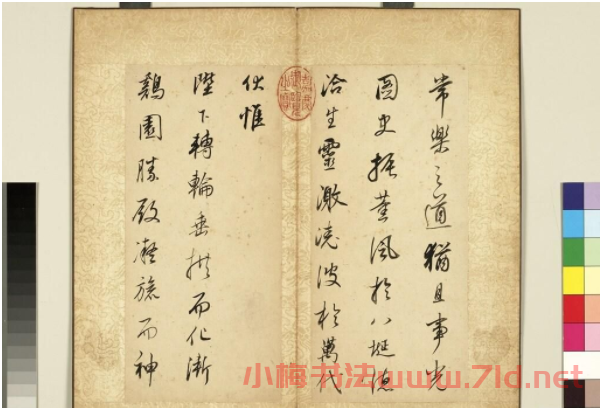 常樂之道猶且事光
圖史振薰風於八埏德
洽生靈激澆波於萬代
伏惟
陛下轉輪垂拱而化漸
鷄園勝殿凝旒而神
小梅书法www.7ld.net